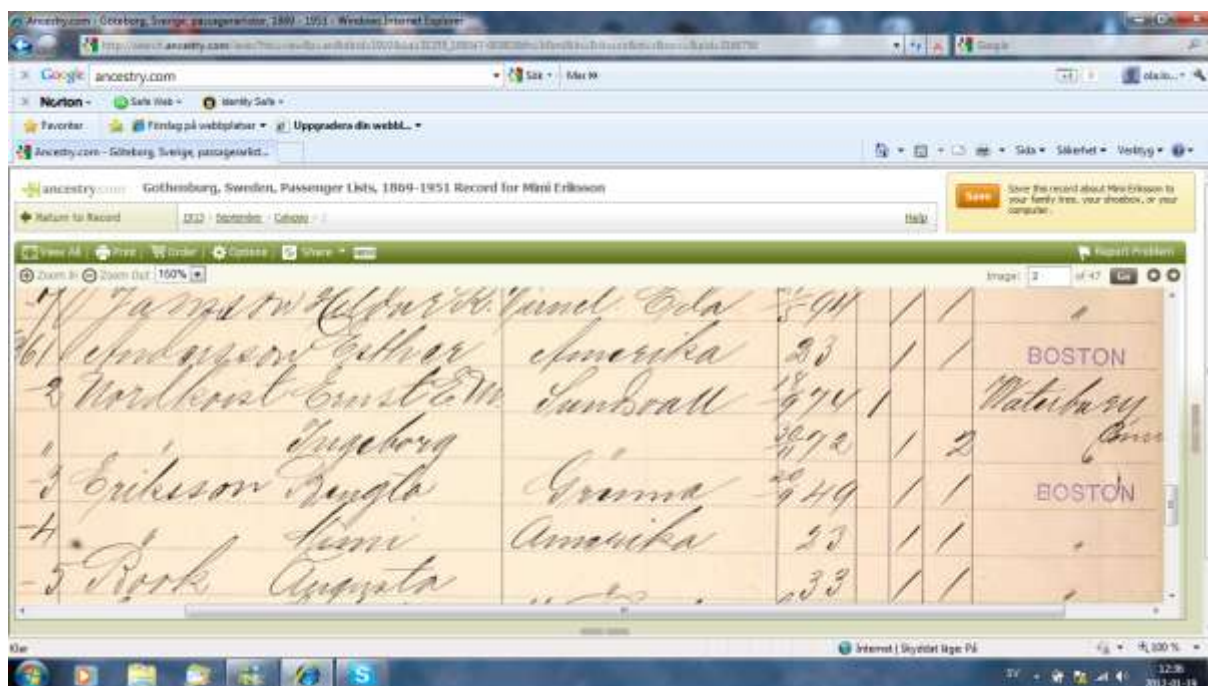 Ancestry.com - Göteborg, Sverige, passagerarlistor, 1869 - 1951 - Windows Internet Explorer
Google
Google ancestry.com Sök Mer »
Norton Safe Web Identity Safe
Favoriter Förslag på webbplatser Uppgradera din webbl...
Ancestry.com - Göteborg, Sverige, passagerarlist... Sida Säkerhet Verktyg
ancestry.com Gothenburg, Sweden, Passenger Lists, 1869-1951 Record for Mimi Eriksson
Save Save this record about Mimi Eriksson to your family tree, your shoebox, or your computer.
Return to Record 1913 September Help
View All Print Order Options Share Report Problem
Zoom In Zoom Out 160% Image: of 47 Go
94 1 1 "
Andersson Esther Amerika 23 1 1 BOSTON
2 Nordkvist Ernst E M. Sundsvall 74 1 Waterbury
" " Ingeborg " 72 1 2 Conn
3 Eriksson Grenna 49 1 1 BOSTON
4 " Mimi Amerika 23 1 1 "
5 Augusta " 33 1 1 "
Klar Internet | Skyddat läge: På 100 %
SV 12:36
2012-01-19